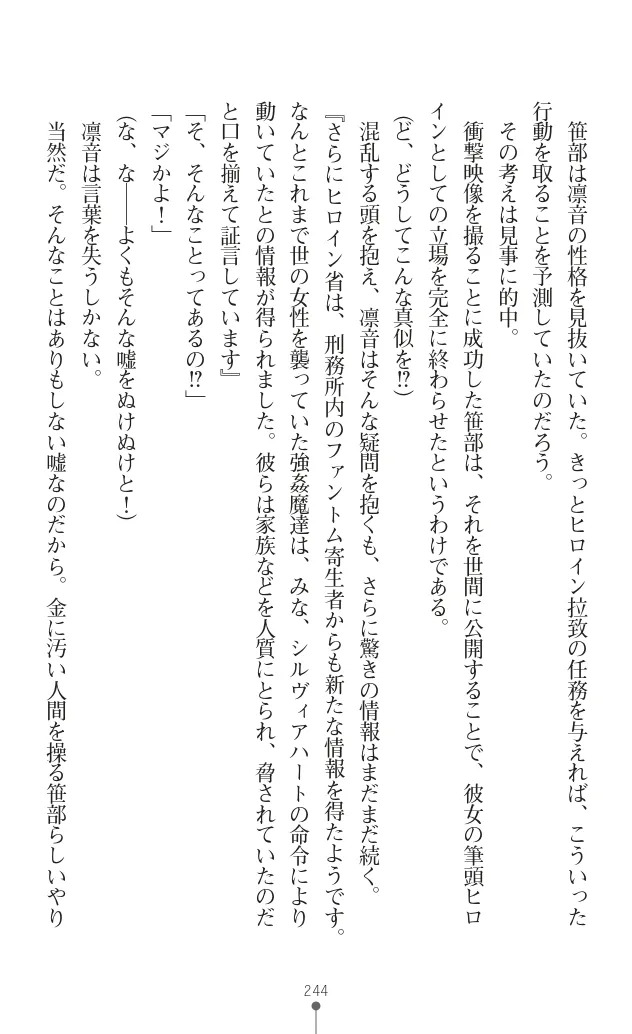 笹部は凛音の性格を見抜いていた。きっとヒロイン拉致の任務を与えれば、こういった
行動を取ることを予測していたのだろう。
その考えは見事に的中。
衝撃映像を撮ることに成功した笹部は、それを世間に公開することで、彼女の筆頭ヒロ
インとしての立場を完全に終わらせたというわけである。
(ど、どうしてこんな真似を!?)
混乱する頭を抱え、凛音はそんな疑問を抱くも、さらに驚きの情報はまだまだ続く。
『さらにヒロイン省は、刑務所内のファントム寄生者からも新たな情報を得たようです。
なんとこれまで世の女性を襲っていた強姦魔達は、みな、シルヴィアハートの命令により
動いていたとの情報が得られました。彼らは家族などを人質にとられ、脅されていたのだ
と口を揃えて証言しています』
「そ、そんなことってあるの!?」
「マジかよ！」
(な、な――よくもそんな嘘をぬけぬけと！)
凛音は言葉を失うしかない。
当然だ。そんなことはありもしない嘘なのだから。金に汚い人間を操る笹部らしいやり
244